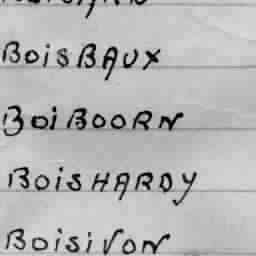 BoisBAUX
BoiBOORN
BoisHARDY
BoisiVON